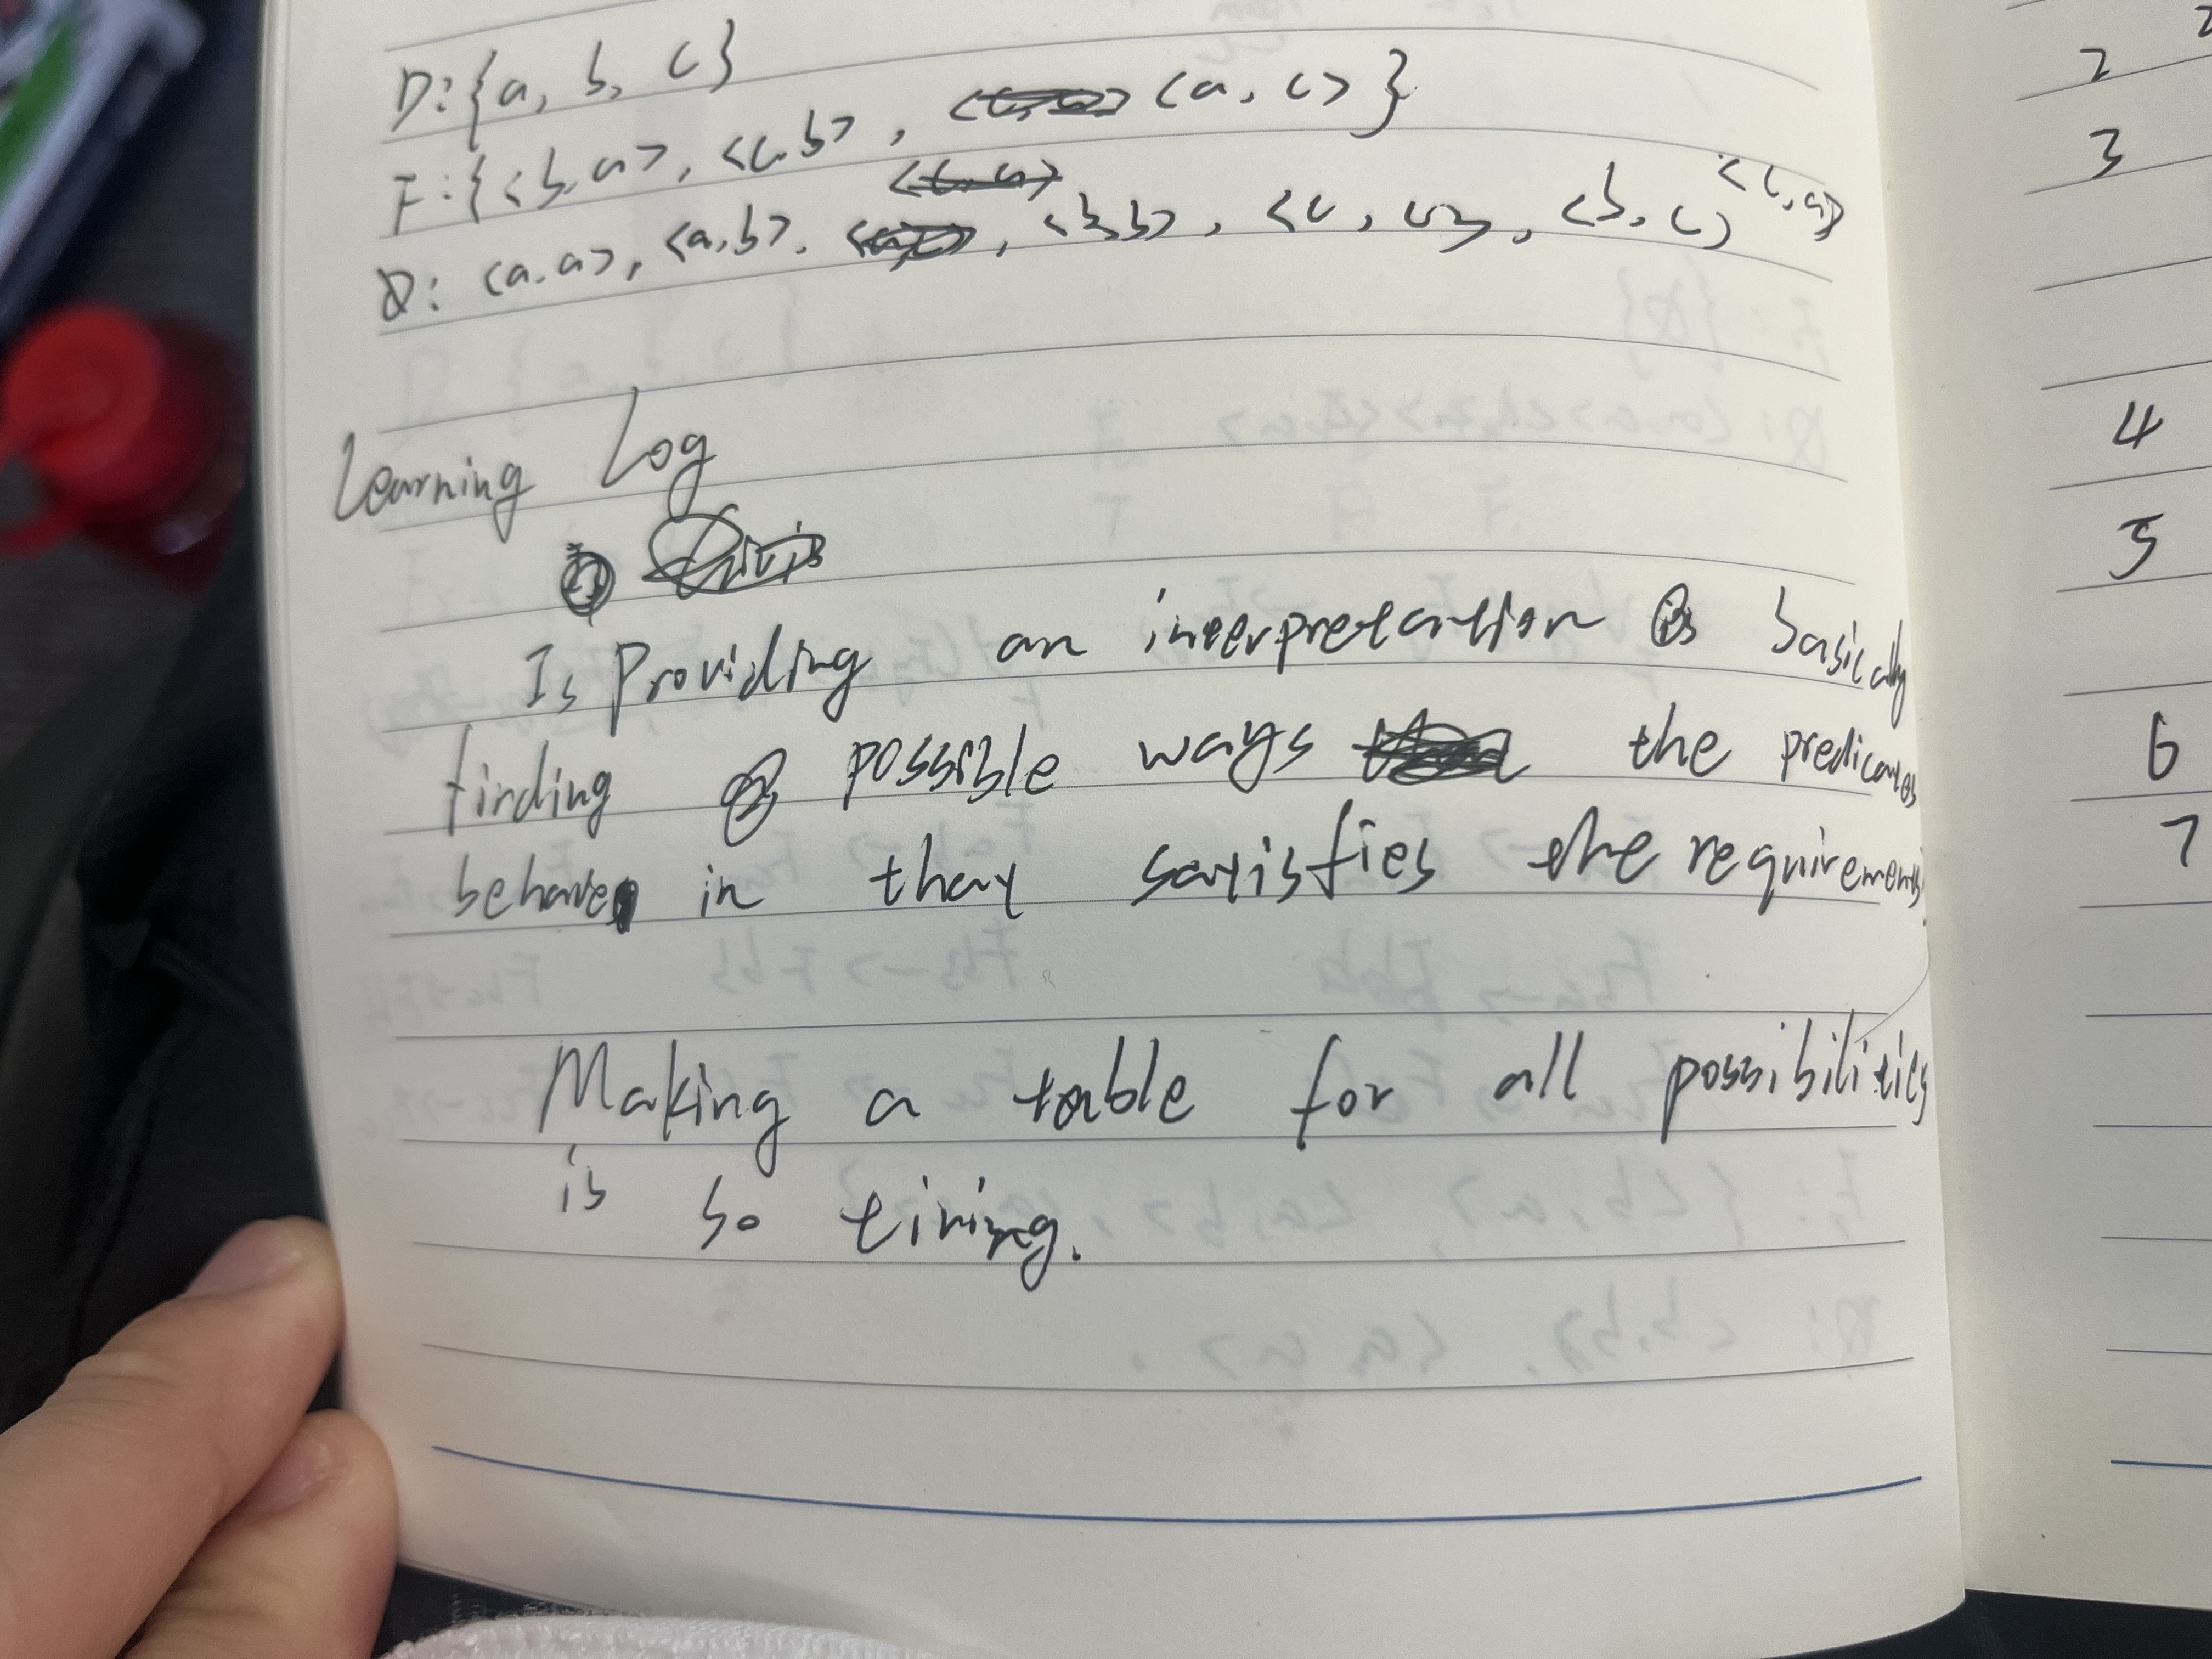 D: {a, b, c}
F: {<b, a>, <c, b>, <a, c>}
Q: <a, a>, <a, b>, <b, b>, <c, c>, <b, c>
Learning Log
Is Providing an inerpretation is basically
finding possible ways the predicates
behaves in that satisfies the requirements.
Making a table for all possibilities
is so tiring.
2
3
4
5
6
7